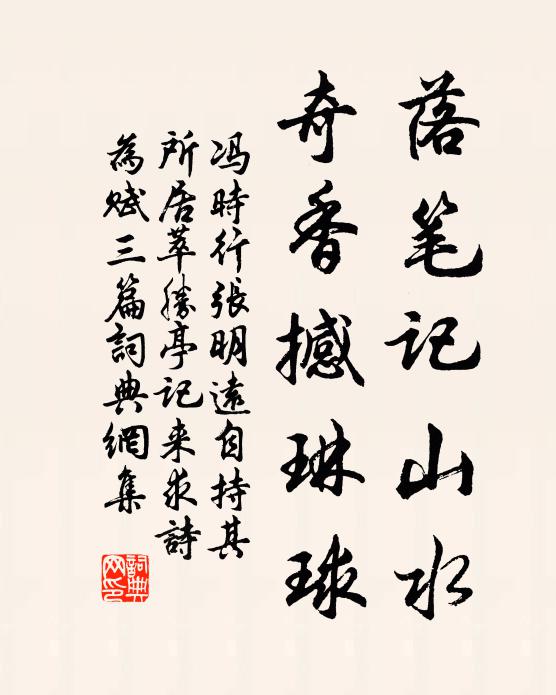 落笔记山水
奇香撼琳球
冯時行張明遠自持其
所居萃勝亭記来求詩
為赋三篇詞典網集
詞典网印